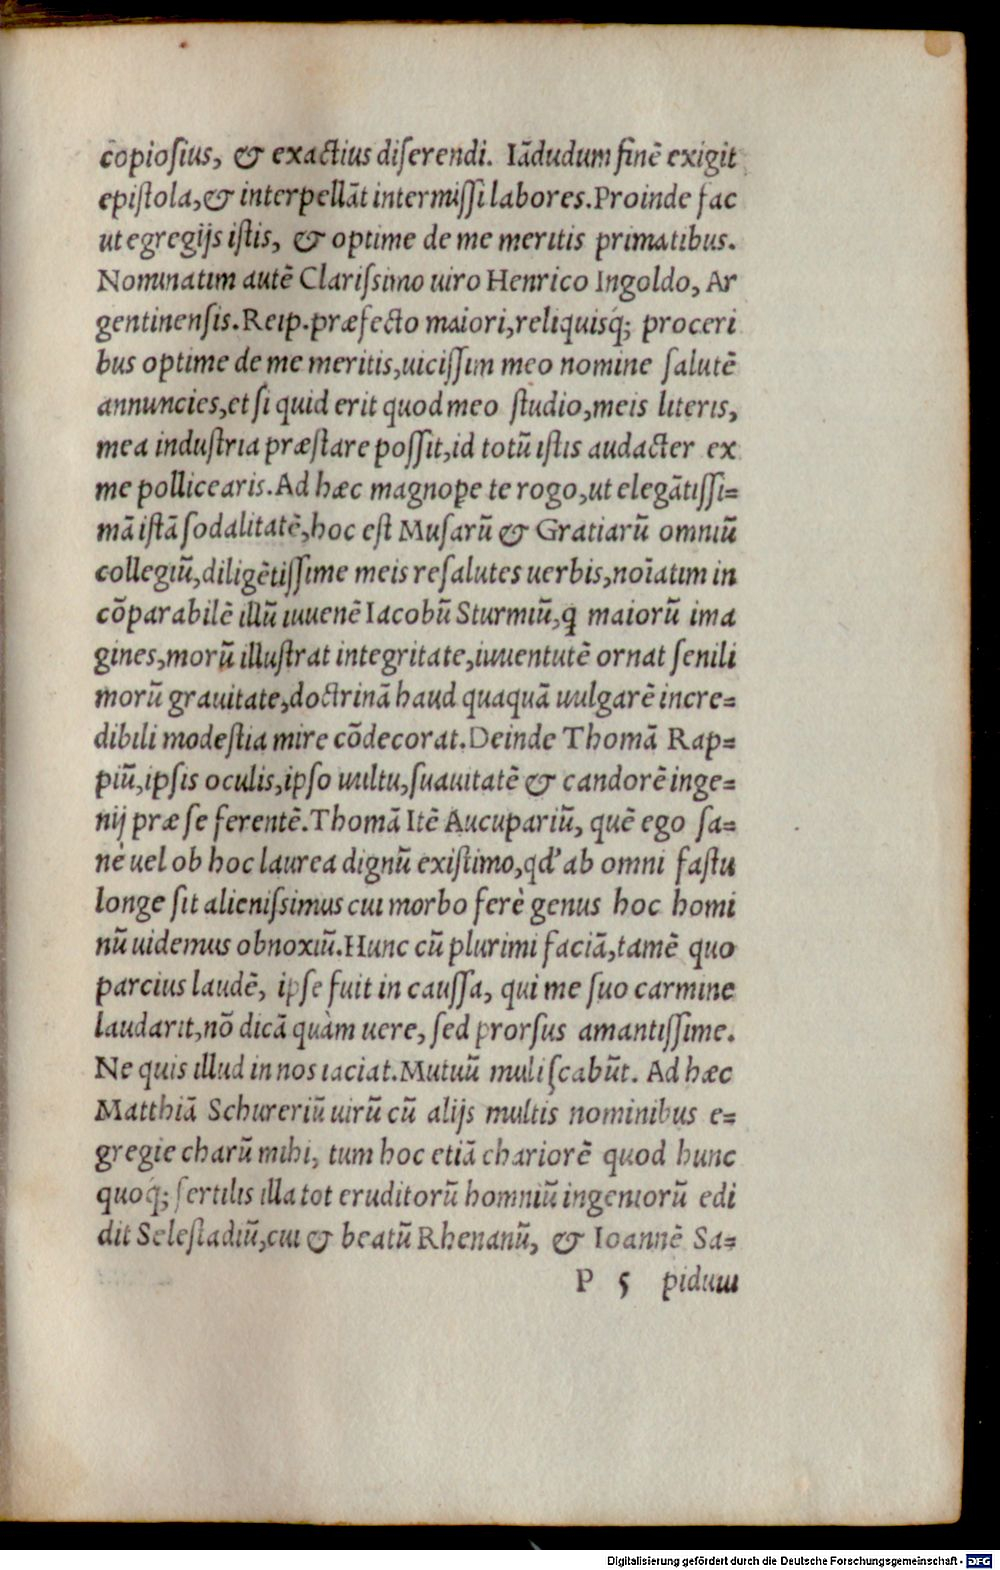 copiosius, & exactius diserendi. Iādudum finē exigit
epistola, & interpellāt intermissi labores. Proinde fac
ut egregijs istis, & optime de me meritis primatibus.
Nominatim autē Clarissimo uiro Henrico Ingoldo, Ar
gentinensis. Reip. præfecto maiori, reliquisq́; proceri
bus optime de me meritis, uicissim meo nomine salutē
annuncies, et si quid erit quod meo studio, meis literis,
mea industria præstare possit, id totū istis audacter ex
me pollicearis. Ad hæc magnope te rogo, ut elegātissi=
mā istā sodalitatē, hoc est Musarū & Gratiarū omniū
collegiū, diligētissime meis resalutes uerbis, noīatim in
cōparabilē illū iuuenē Iacobū Sturmiū, q maiorū ima
gines, morū illustrat integritate, iuuentutē ornat senili
morū grauitate, doctrinā haud quaquā uulgarē incre=
dibili modestia mire cōdecorat. Deinde Thomā Rap=
piū, ipsis oculis, ipso uultu, suauitatē & candorē inge=
nij præ se ferentē. Thomā Itē Aucupariū, quē ego sa=
nè uel ob hoc laurea dignū existimo, qd' ab omni fastu
longe sit alienissimus cui morbo ferè genus hoc homi
nū uidemus obnoxiū. Hunc cū plurimi faciā, tamē quo
parcius laudē, ipse fuit in caussa, qui me suo carmine
laudarit, nō dicā quàm uere, sed prorsus amantissime.
Ne quis illud in nos iaciat. Mutuū muli scabūt. Ad hæc
Matthiā Schureriū uirū cū alijs multis nominibus e=
gregie charū mihi, tum hoc etiā chariorē quod hunc
quoq́; fertilis illa tot eruditorū homniū ingeniorū edi
dit Selestadiū, cui & beatū Rhenanū, & Ioannē Sa=
P 5 pidum
Digitalisierung gefördert durch die Deutsche Forschungsgemeinschaft - DFG